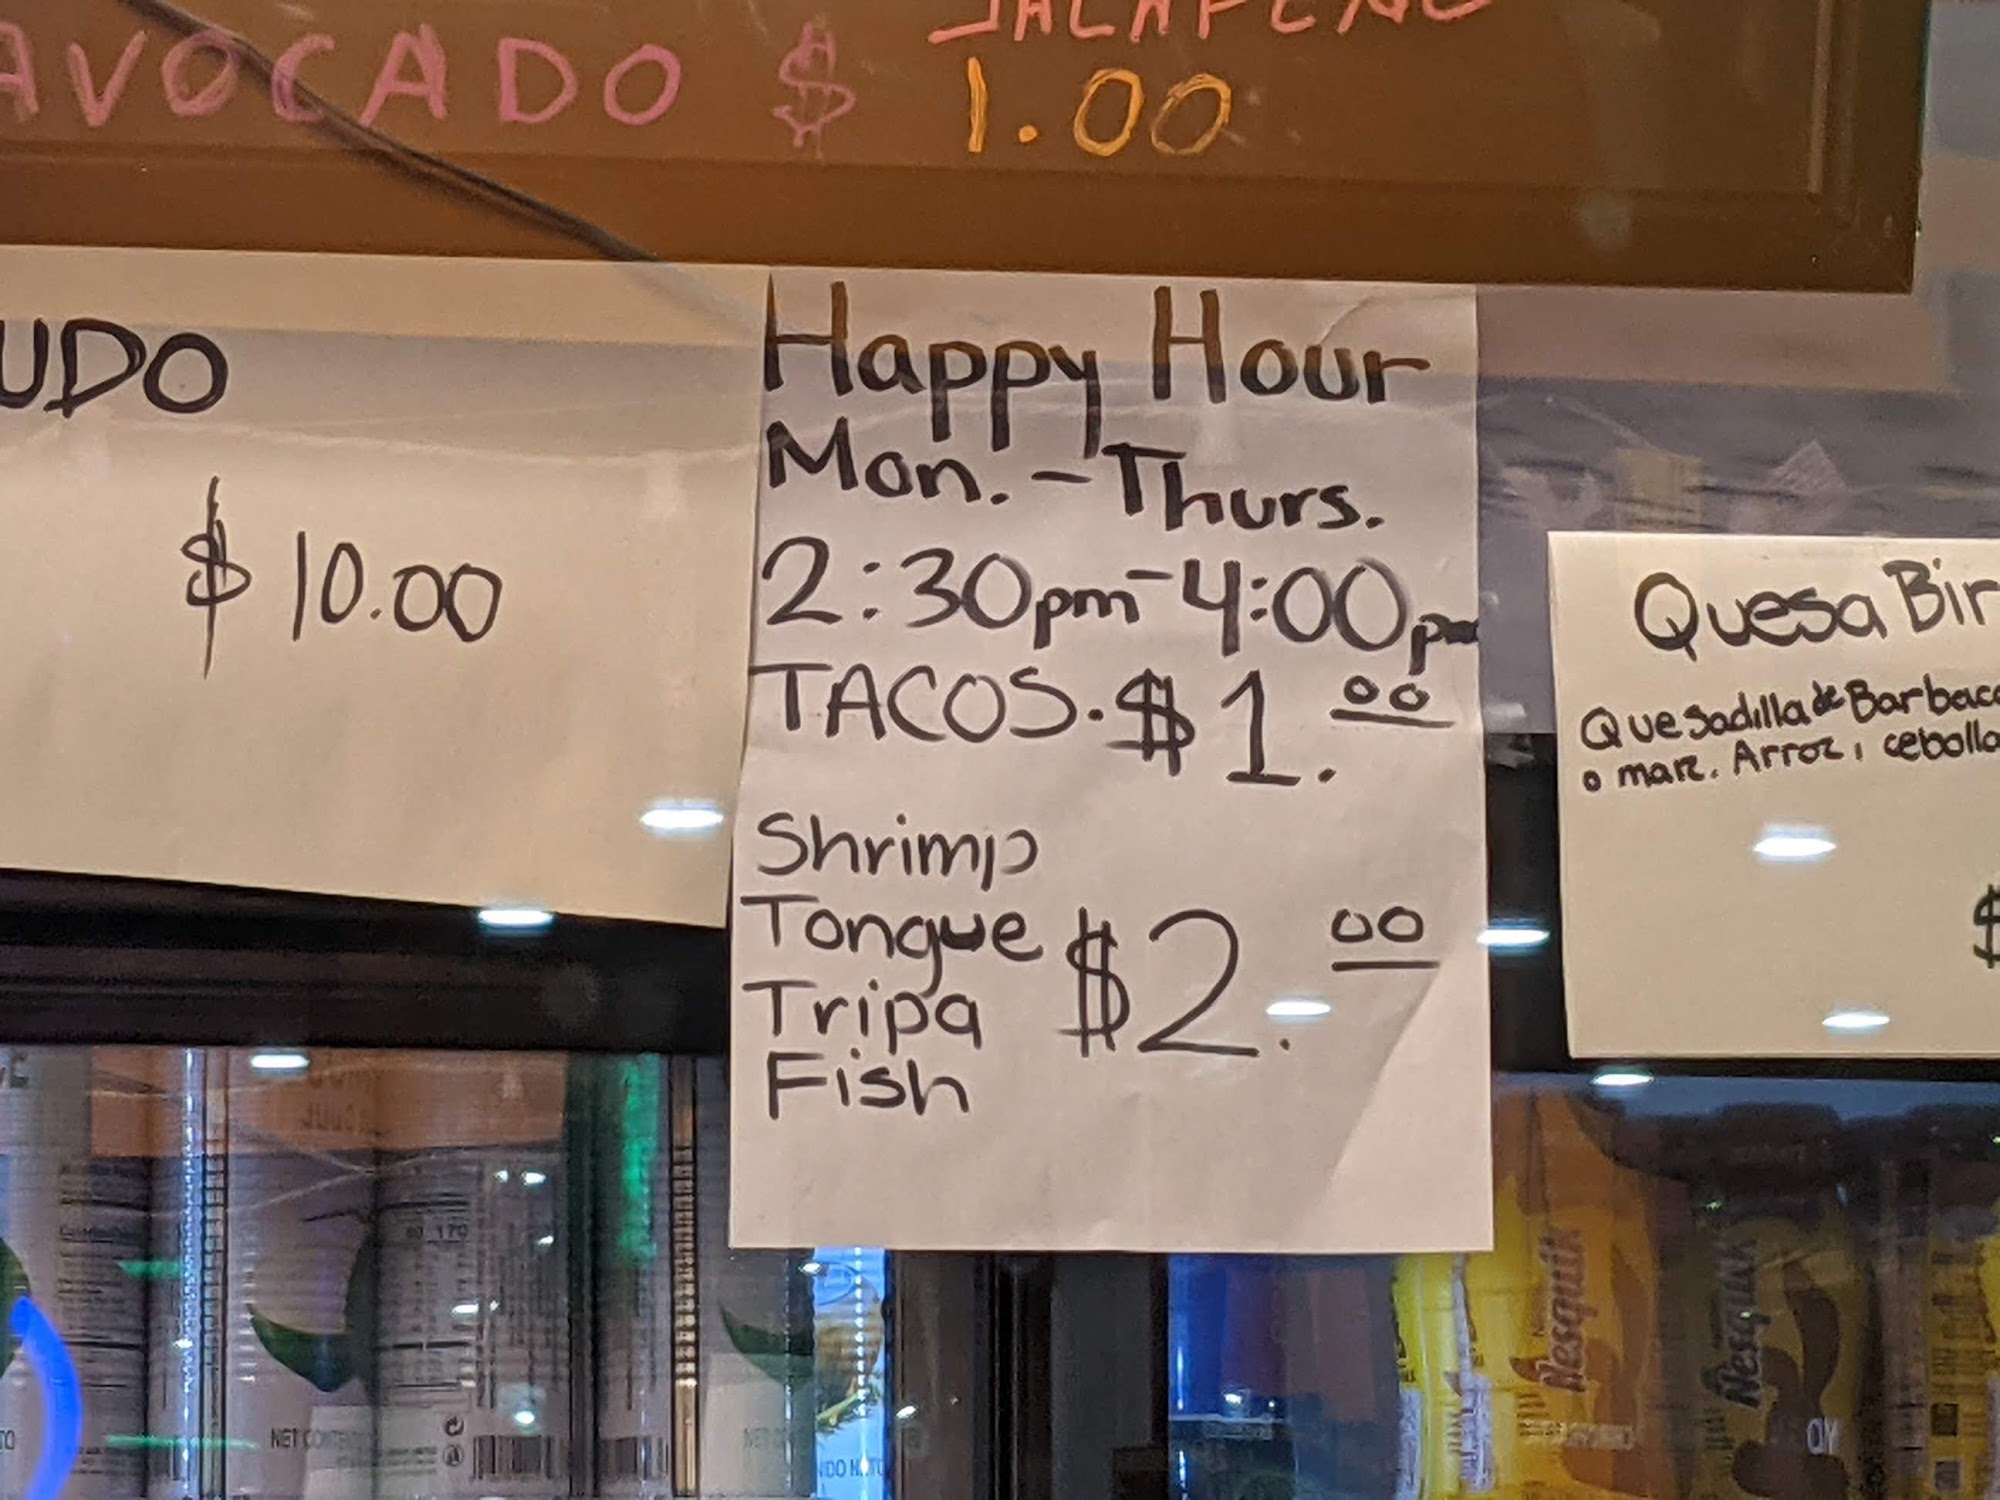 JALAPENO
AVOCADO $ 1.00
UDO
$ 10.00
Happy Hour
Mon. - Thurs.
2:30pm - 4:00pm
TACOS. $1.00
Shrimp
Tongue
Tripa
Fish
$2.00
Quesa Bir
Quesadilla de Barbac
o marz. Arroz, cebolla
$
Nesquik
Nesquik
NET